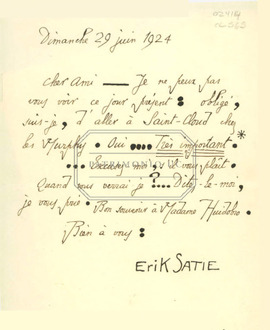 Dimanche 29 juin 1924
cher Ami — Je ne peux pas
vous voir ce jour présent : obligé,
suis-je, d'aller à Saint-Cloud chez
les Murphy. Oui .... Très important. *
Excusez-moi, s'il vous plaît.
Quand vous verrai-je ?.... Dites-le-moi,
je vous prie. Bon souvenir à Madame Huidobro.
Bien à vous :
ERIK SATIE